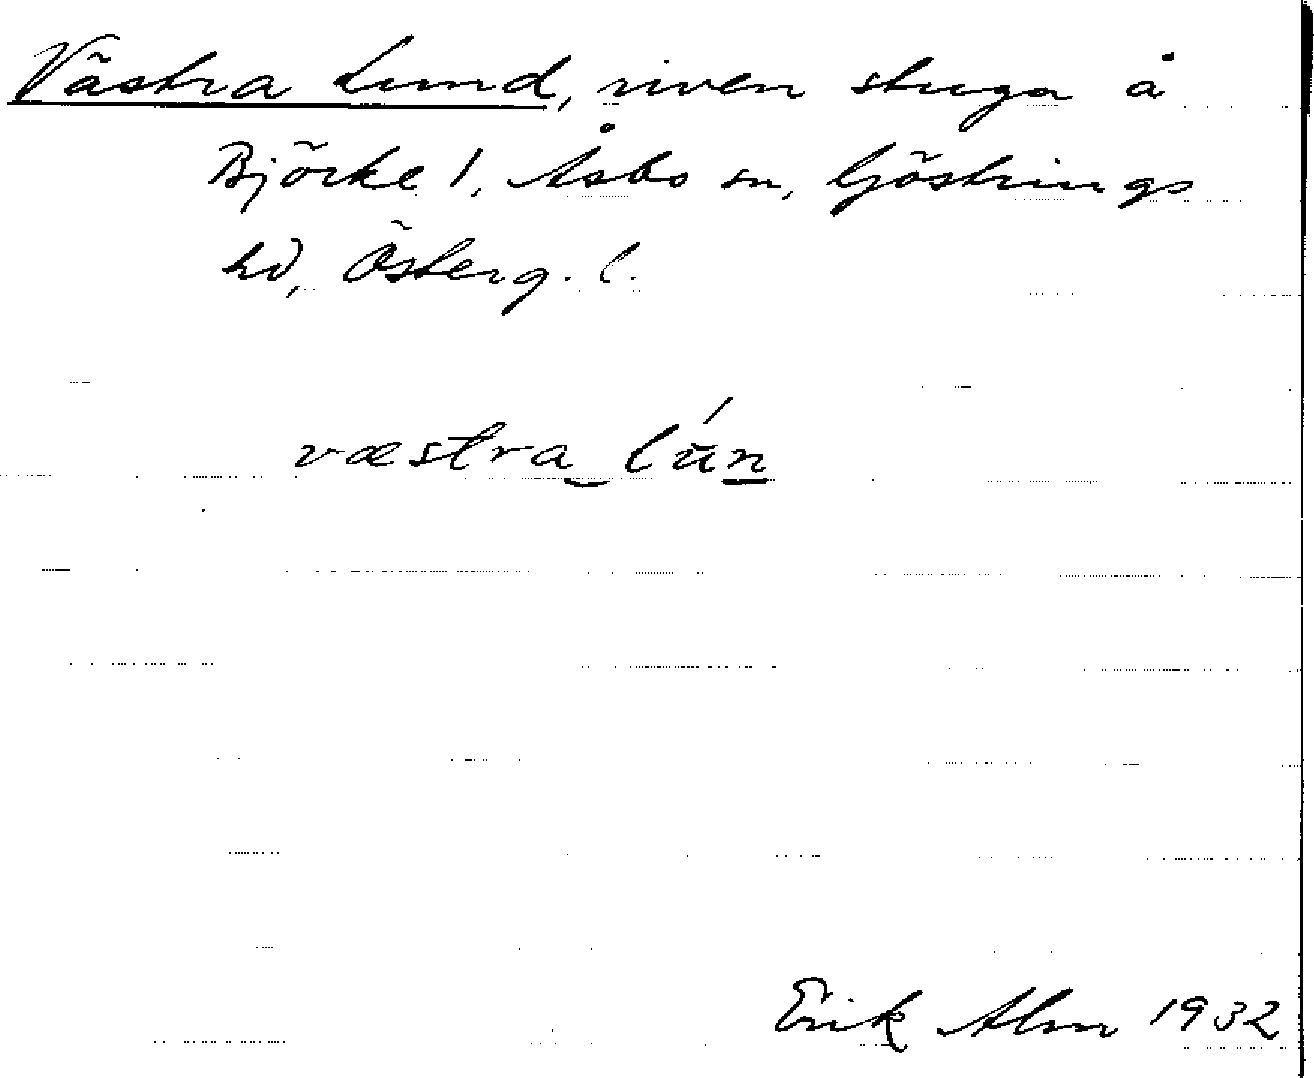 Västra Lund, riven stuga å
Björke 1, Åsbo sn, Göstrings
hd, Österg. l.
væstra‿lún
Erik Alm 1932